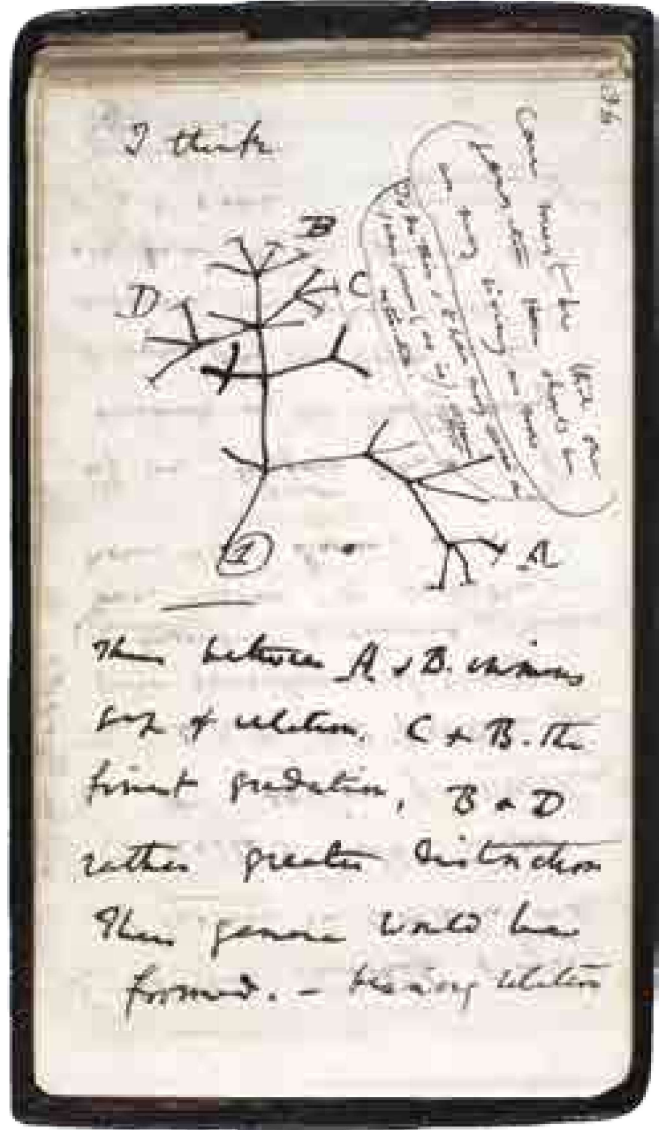 36
I think
Case must be that one
generation then should be
as many living as now
To do this & to have many species in
same genus (as is) requires
extinction.
B
C
D
1
A
Thus between A & B. immense
gap of relation. C & B. the
finest gradation, B & D
rather greater distinction
Thus genera would be
formed. — bearing relation